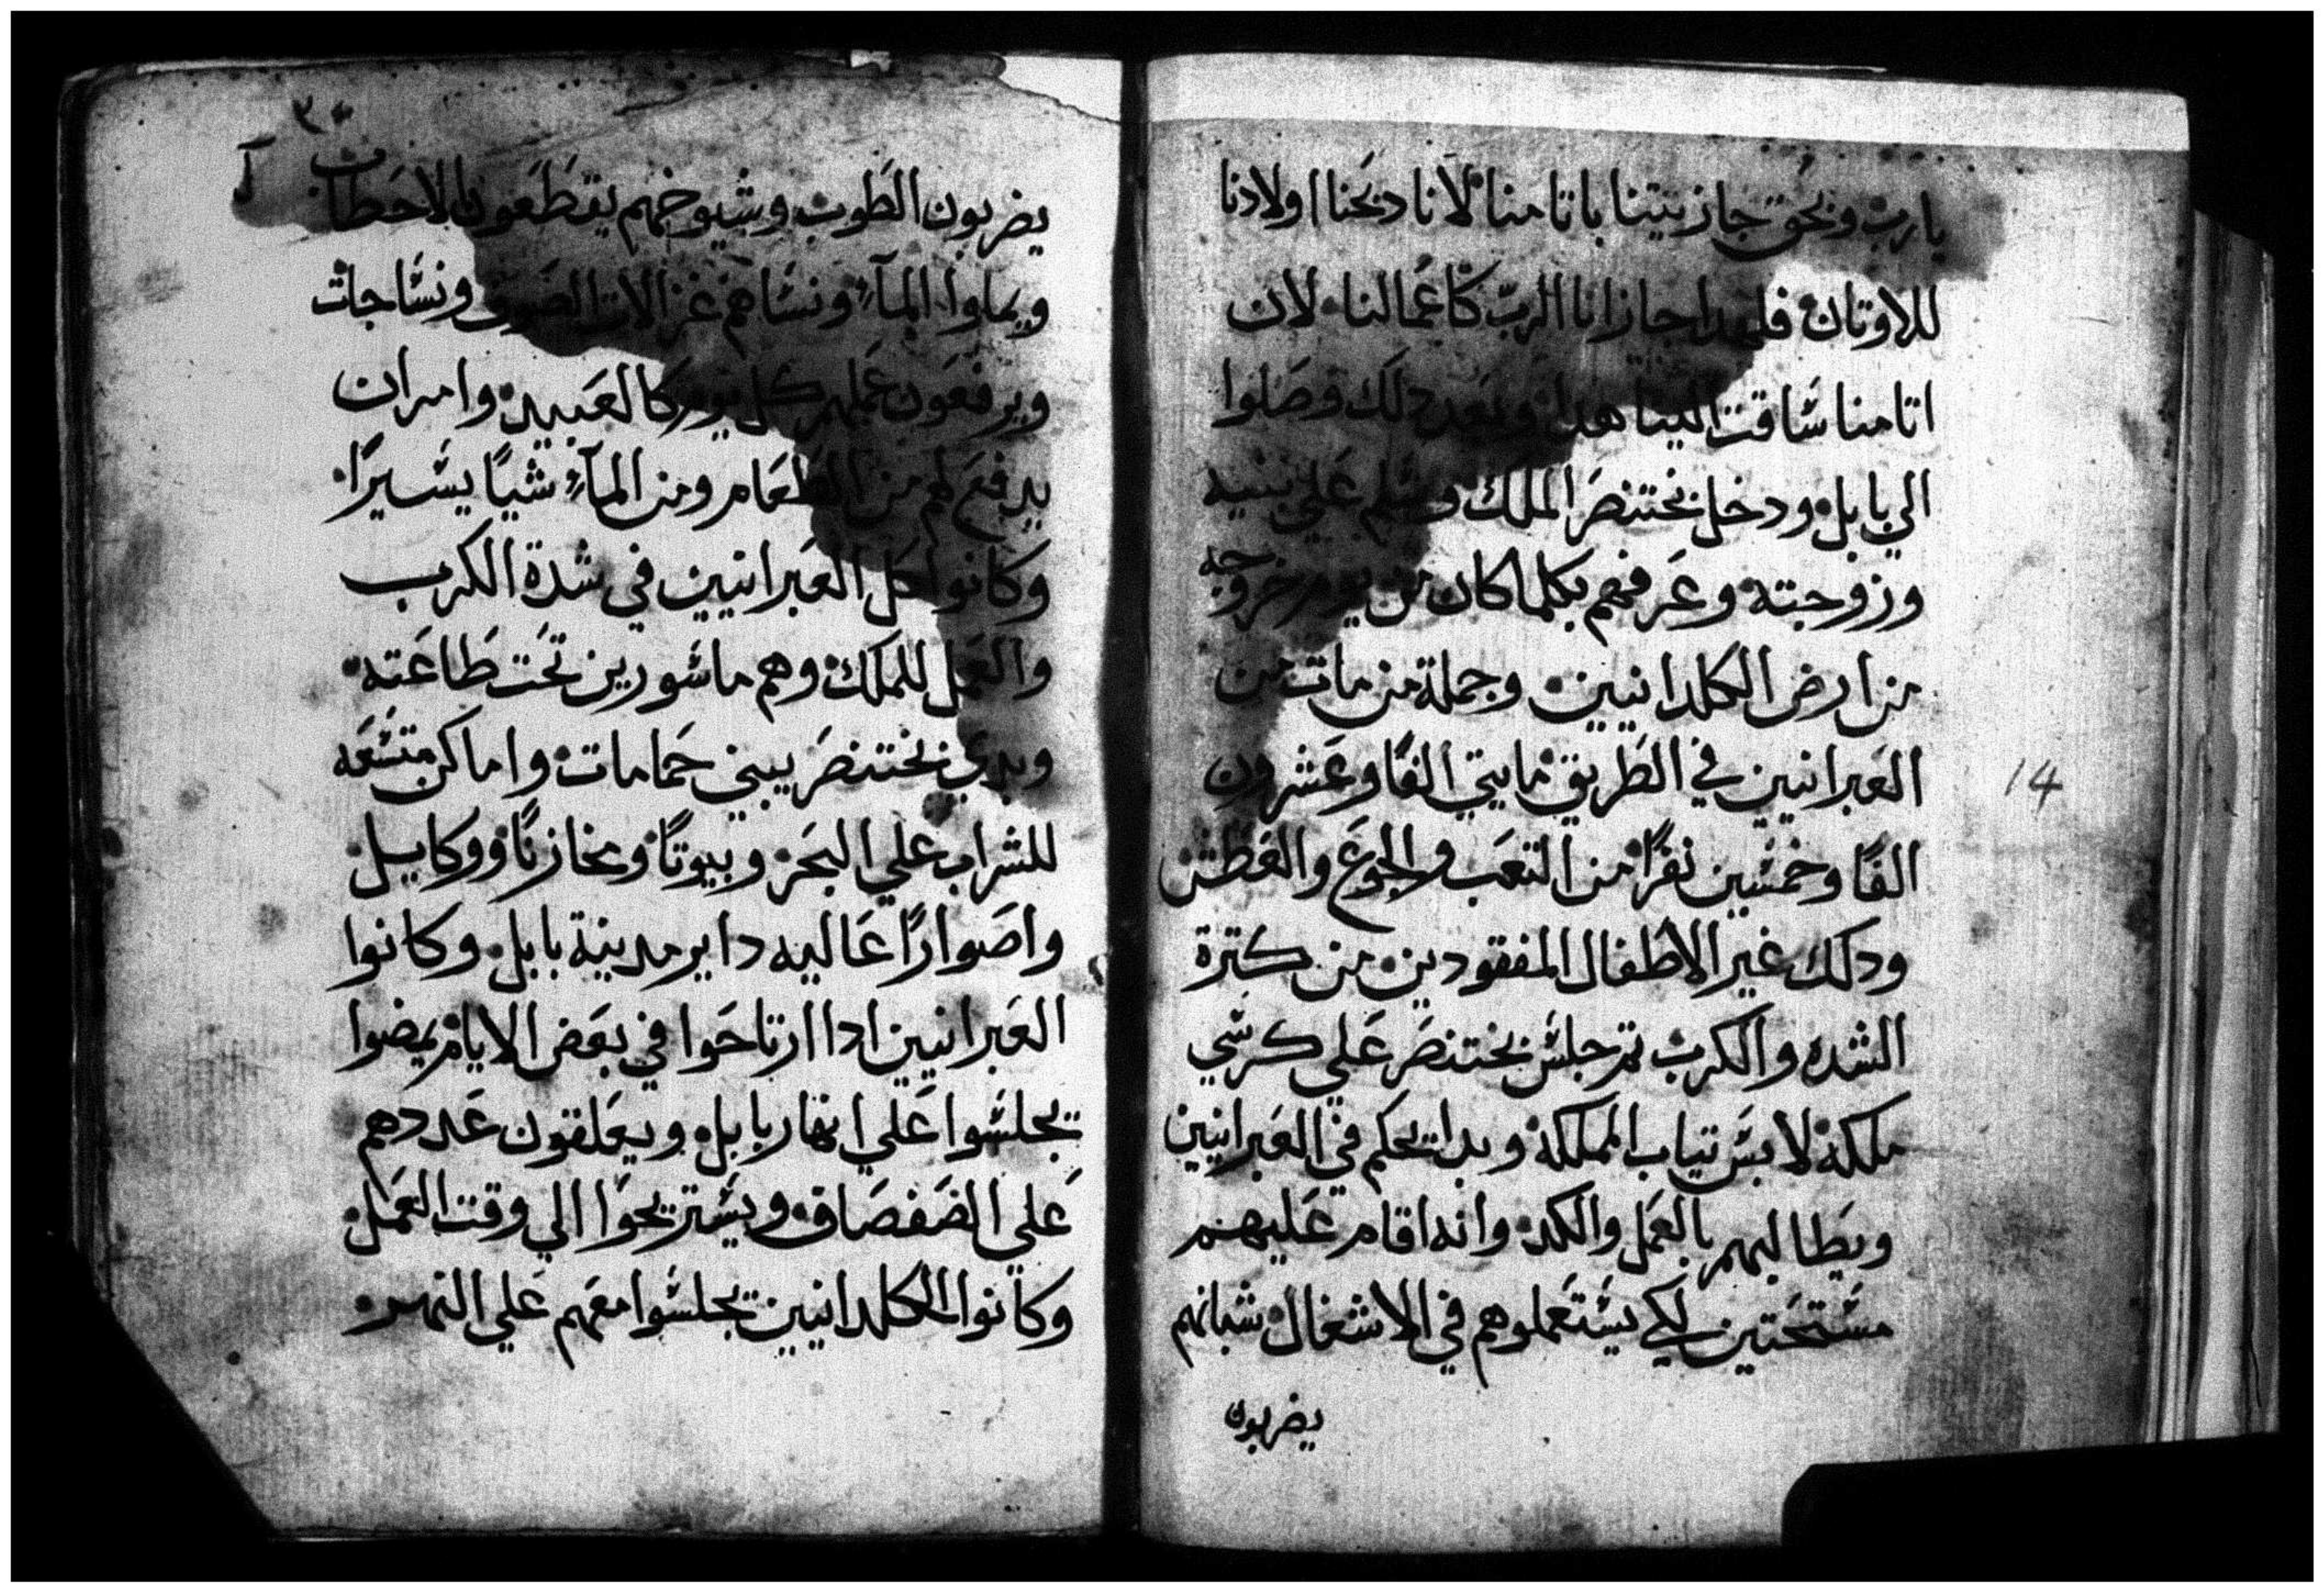 يارب وبحق جازيتنا باتامنا لانا دبحنا اولادنا
للاوتان فلهدا جازانا الرب كاعمالنا لان
اتامنا ساقت الينا هدا وبعد دلك وصلوا
الي بابل ودخل بختنصر الملك وسلم علي بنيه
وزوجته وعرفهم بكلما كان من يوم خروجه
من ارض الكلدانيين وجملة من مات من
العبرانيين في الطريق مايتي الفا وعشرون
الفا وخمسين نفرا من التعب والجوع والعطش
ودلك غير الاطفال المفقودين من كترة
الشده والكرب تم جلس بختنصر علي كرسي
ملكه لابس تياب المملكه وبدا يحكم في العبرانيين
ويطالبهم بالعمل والكد وانه اقام عليهم
مستحتين لكي يستعملوهم في الاشغال شبانهم
يضربون
14
٣٠
يضربون الطوب وشيوخهم يقطعون الاحطاب
ويملوا المآء ونساهم غزالات الصوف ونساجات
ويرفعون عملهم كل يوم كالعبيد وامر ان
يدفع لهم من الطعام ومن المآء شيا يسيرا
وكانوا كل العبرانيين في شدة الكرب
والعمل للملك وهم ماسورين تحت طاعته
وبدي بختنصر يبني حمامات واماكن متسعه
للشراب علي البحر وبيوتا ومخازنا ووكايل
واصوارا عاليه داير مدينة بابل وكانوا
العبرانيين ادا ارتاحوا في بعض الايام يمضوا
يجلسوا علي انهار بابل ويعلقون عددهم
علي الصفصاف ويستريحوا الي وقت العمل
وكانوا الكلدانيين يجلسوا معهم علي النهر